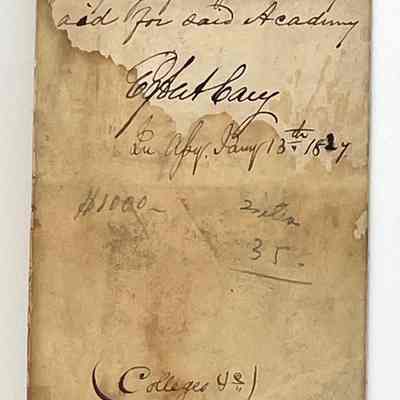 aid for said Academy
Egbert Cary
In Aſsy. Jany 13th 1827
$1000-
35.
(Colleges &c)